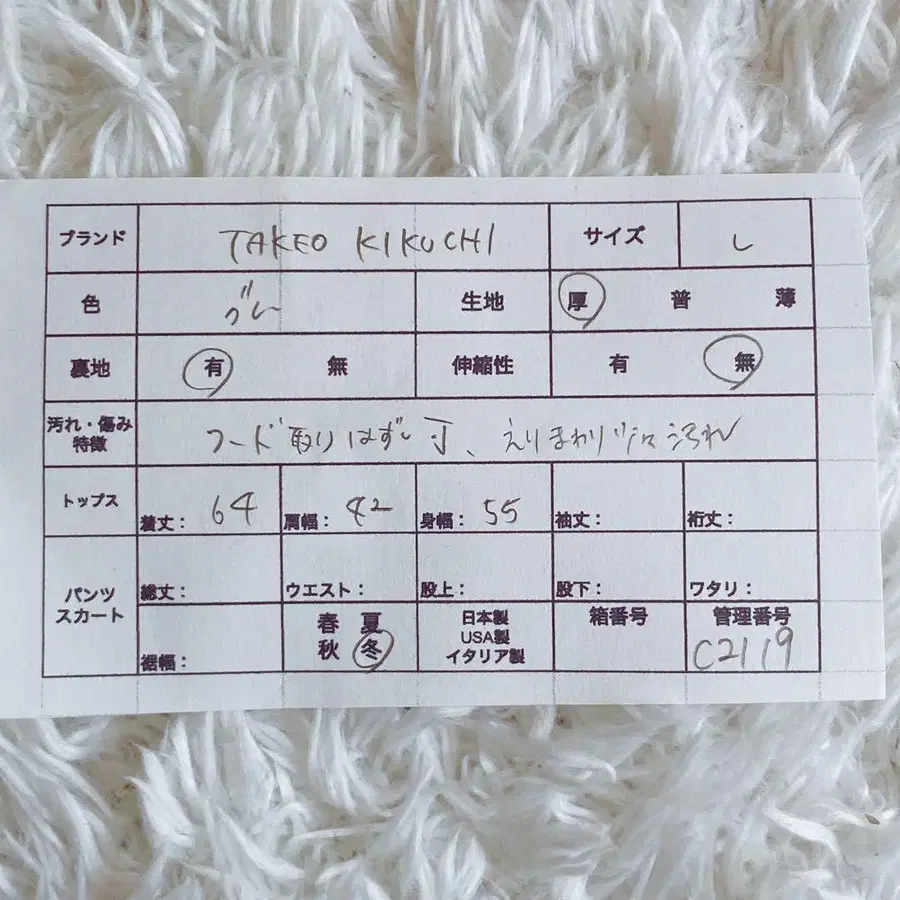 ブランド TAKEO KIKUCHI サイズ L
色 グレー 生地 厚 普 薄
裏地 有 無 伸縮性 有 無
汚れ・傷み
特徴 フード取りはずし可、えりまわり 汚れ
トップス 着丈： 64 肩幅： 42 身幅： 55 袖丈： 裄丈：
パンツ
スカート 総丈： ウエスト： 股上： 股下： ワタリ：
裾幅： 春 夏
秋 冬
日本製
USA製
イタリア製
箱番号
管理番号
C2119